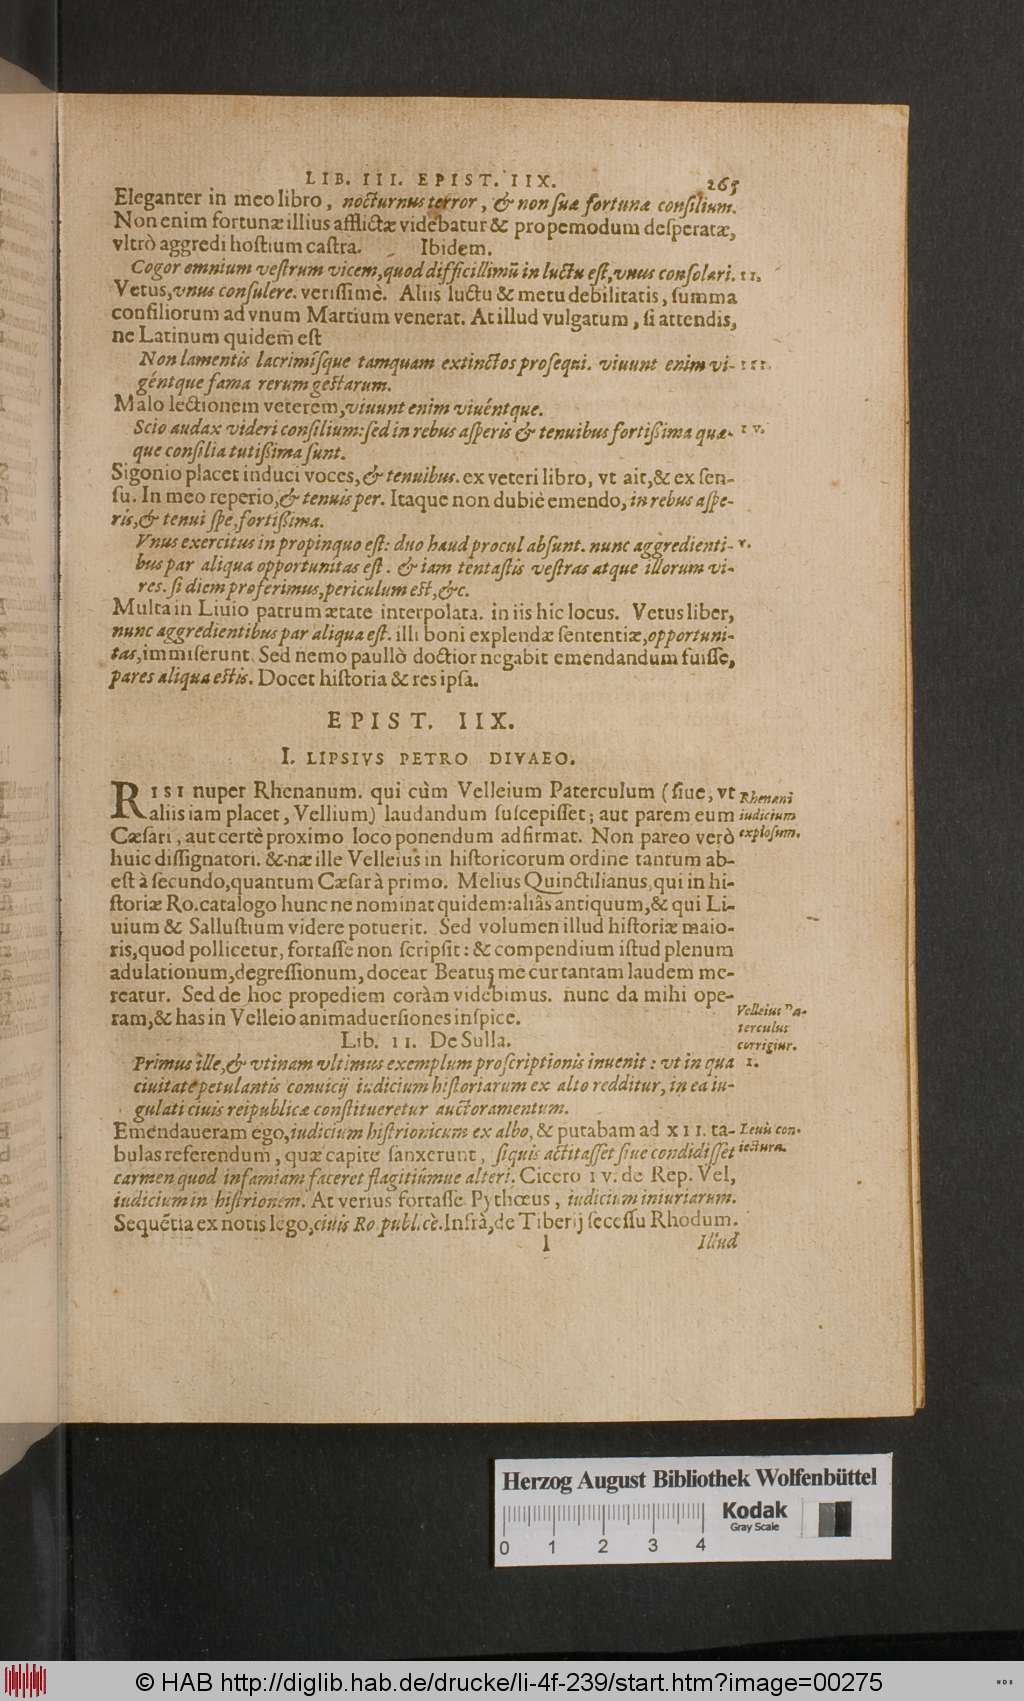 LIB. III. EPIST. IIX. 265
Eleganter in meo libro, nocturnus terror, & non suæ fortunæ consilium.
Non enim fortunæ illius afflictæ videbatur & propemodum desperatæ,
vltrò aggredi hostium castra. Ibidem.
Cogor omnium vestrum vicem, quod difficillimũ in luctu est, vnus consolari. II.
Vetus, vnus consulere. verissimè. Aliis luctu & metu debilitatis, summa
consiliorum ad vnum Martium venerat. At illud vulgatum, si attendis,
ne Latinum quidem est
Non lamentis lacrimísque tamquam extinctos prosequi. viuunt enim vi- III.
géntque fama rerum gestarum.
Malo lectionem veterem, viuunt enim viuéntque.
Scio audax videri consilium: sed in rebus asperis & tenuibus fortißima quæ- IV.
que consilia tutißima sunt.
Sigonio placet induci voces, & tenuibus. ex veteri libro, vt ait, & ex sen-
su. In meo reperio, & tenuis per. Itaque non dubiè emendo, in rebus aspe-
ris, & tenui spe, fortißima.
Vnus exercitus in propinquo est: duo haud procul absunt. nunc aggredienti- V.
bus par aliqua opportunitas est. & iam tentastis vestras atque illorum vi-
res. si diem proferimus, periculum est, &c.
Multa in Liuio patrum ætate interpolata. in iis hic locus. Vetus liber,
nunc aggredientibus par aliqua est. illi boni explendæ sententiæ, opportuni-
tas, immiserunt. Sed nemo paullò doctior negabit emendandum fuisse,
pares aliqua estis. Docet historia & res ipsa.
EPIST. IIX.
I. LIPSIVS PETRO DIVAEO.
RISI nuper Rhenanum. qui cùm Velleium Paterculum (siue, vt Rhenani
aliis iam placet, Vellium) laudandum suscepisset; aut parem eum iudicium
Cæsari, aut certè proximo loco ponendum adfirmat. Non pareo verò explosum.
huic dissignatori. & næ ille Velleius in historicorum ordine tantum ab-
est à secundo, quantum Cæsar à primo. Melius Quinctilianus, qui in hi-
storiæ Ro. catalogo hunc ne nominat quidem: aliâs antiquum, & qui Li-
uium & Sallustium videre potuerit. Sed volumen illud historiæ maio-
ris, quod pollicetur, fortasse non scripsit: & compendium istud plenum
adulationum, degressionum, doceat Beatus me cur tantam laudem me-
reatur. Sed de hoc propediem coràm videbimus. nunc da mihi ope-
ram, & has in Velleio animaduersiones inspice. Velleius Pa-
terculus
corrigitur.
Lib. II. De Sulla.
Primus ille, & vtinam vltimus exemplum proscriptionis inuenit: vt in qua I.
ciuitate petulantis conuicij iudicium historiarum ex alto redditur, in ea iu-
gulati ciuis reipublicæ constitueretur auctoramentum.
Emendaueram ego, iudicium histrionicum ex albo, & putabam ad XII. ta- Leuis con-
bulas referendum, quæ capite sanxerunt, siquis actitasset siue condidisset iectura.
carmen quod infamiam faceret flagitiúmue alteri. Cicero IV. de Rep. Vel,
iudicium in histrionem. At verius fortasse Pythœus, iudicium iniuriarum.
Sequẽtia ex notis lego, ciuis Ro. publicè. Infrà, de Tiberij secessu Rhodum.
l Illud
Herzog August Bibliothek Wolfenbüttel
Kodak
Gray Scale
0 1 2 3 4
© HAB http://diglib.hab.de/drucke/li-4f-239/start.htm?image=00275